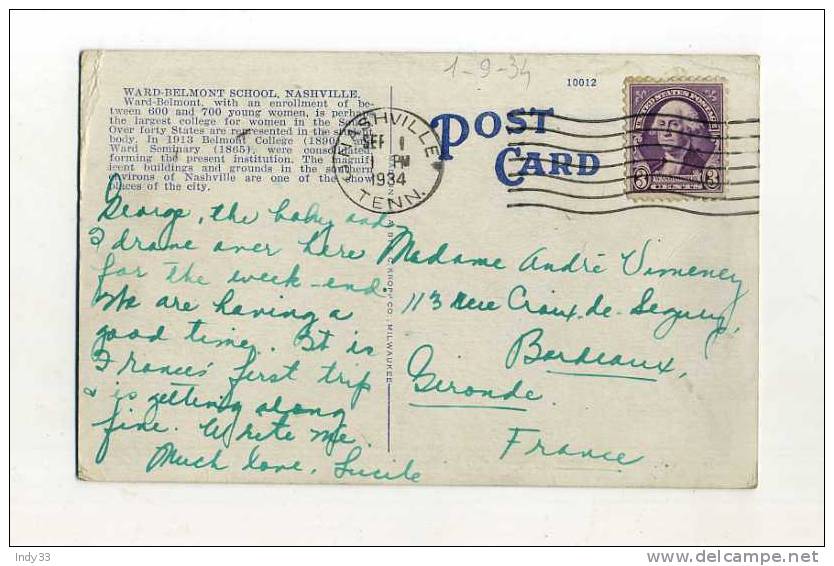 1-9-34
10012
WARD-BELMONT SCHOOL, NASHVILLE.
Ward-Belmont, with an enrollment of be-
tween 600 and 700 young women, is perhaps
the largest college for women in the South.
Over forty States are represented in the student
body. In 1913 Belmont College (1890) and
Ward Seminary (1865), were consolidated
forming the present institution. The magnif-
icent buildings and grounds in the southern
environs of Nashville are one of the show
places of the city.
POST
CARD
NASHVILLE
SEP 1
1 PM
1934
TENN.
UNITED STATES POSTAGE
3 3
C. KROPP CO., MILWAUKEE
George, the baby and
I drove over here
for the week-end.
We are having a
good time. It is
Frances' first trip
& is getting along
fine. Write me.
Much love, Lucile
Madame André Vimeney
113 Rue Croix-de-Seguey,
Bordeaux,
Gironde.
France
Indy33
delcampe.net